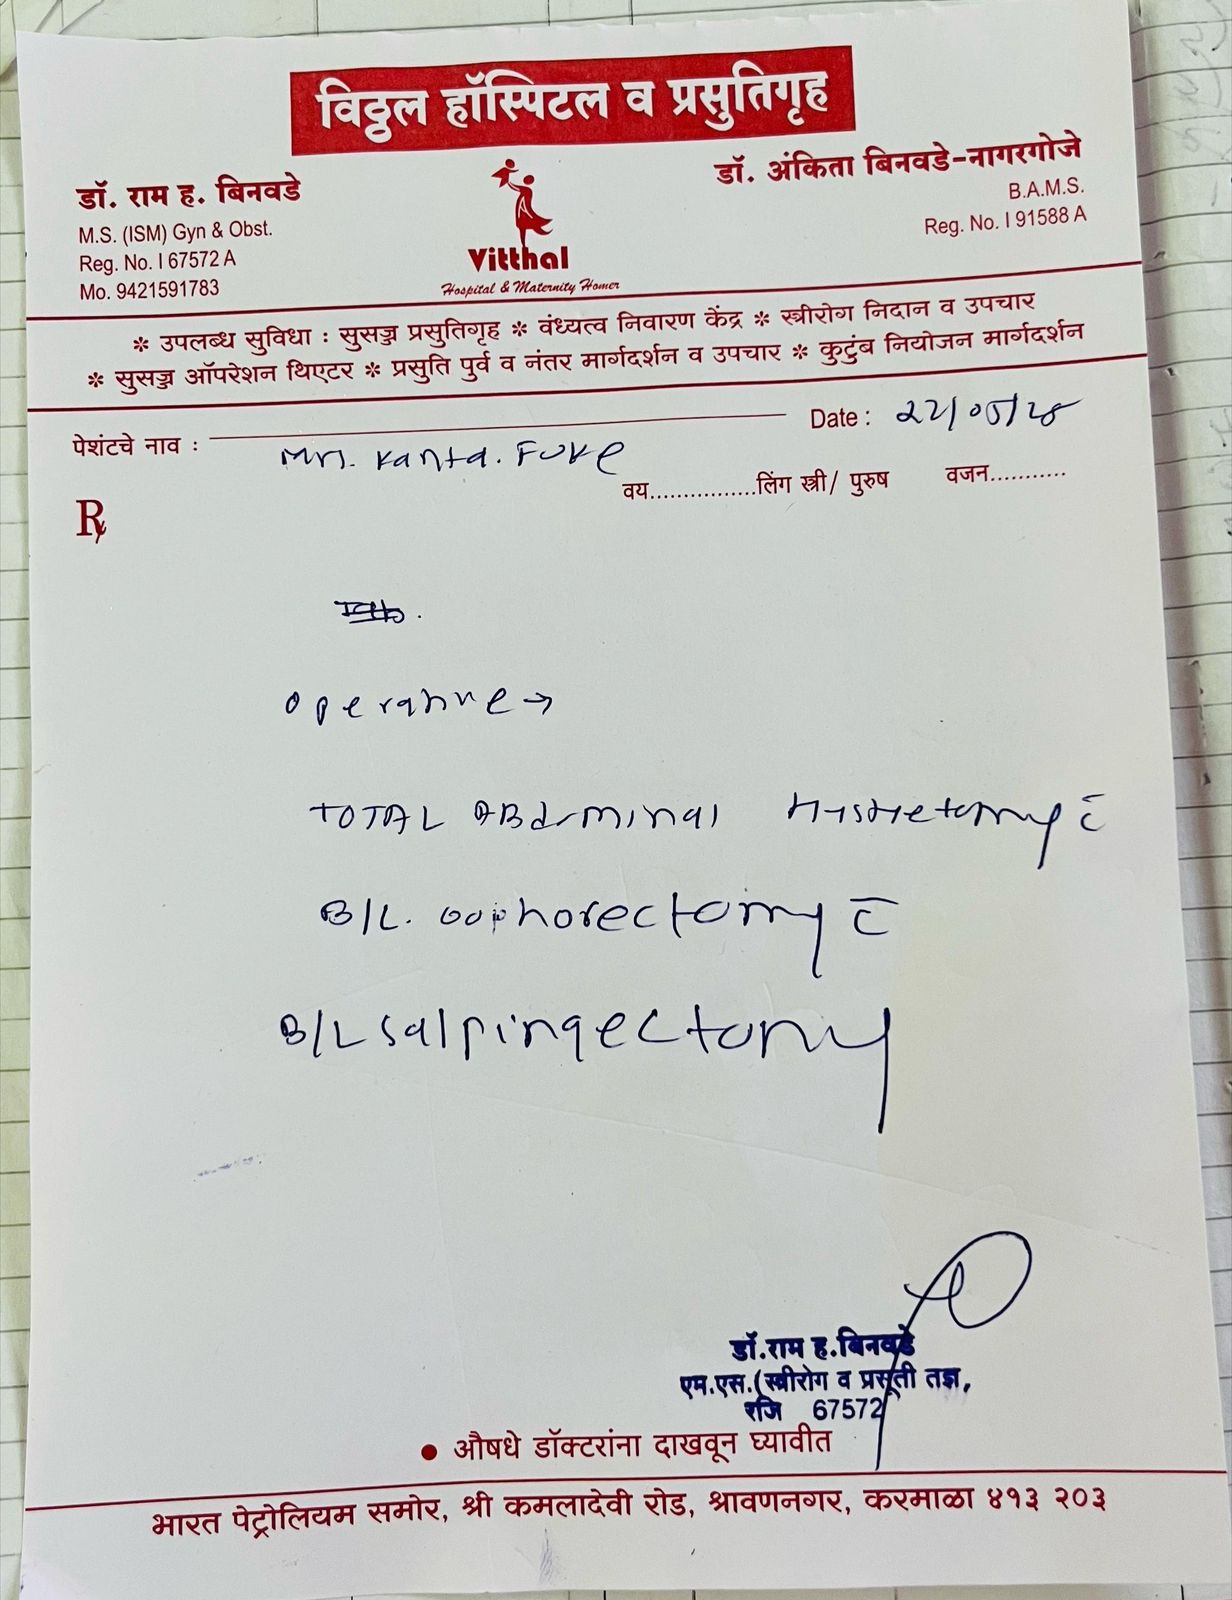 विठ्ठल हॉस्पिटल व प्रसुतिगृह
डॉ. राम ह. बिनवडे
M.S. (ISM) Gyn & Obst.
Reg. No. I 67572 A
Mo. 9421591783
Vitthal
Hospital & Maternity Homer
डॉ. अंकिता बिनवडे-नागरगोजे
B.A.M.S.
Reg. No. I 91588 A
* उपलब्ध सुविधा : सुसज्ज प्रसुतिगृह * वंध्यत्व निवारण केंद्र * स्त्रीरोग निदान व उपचार
* सुसज्ज ऑपरेशन थिएटर * प्रसुति पुर्व व नंतर मार्गदर्शन व उपचार * कुटुंब नियोजन मार्गदर्शन
Date :
पेशंटचे नाव : Mrs. Kanta. Fuke
वय................लिंग स्त्री/ पुरुष वजन...........
℞
operative →
TOTAL ABdominal Hystretomy c̄
B/L. oophorectomy c̄
B/L salpingectomy
डॉ.राम ह.बिनवडे
एम.एस.(स्त्रीरोग व प्रसूती तज्ञ,
रजि 67572
• औषधे डॉक्टरांना दाखवून घ्यावीत
भारत पेट्रोलियम समोर, श्री कमलादेवी रोड, श्रावणनगर, करमाळा ४१३ २०३